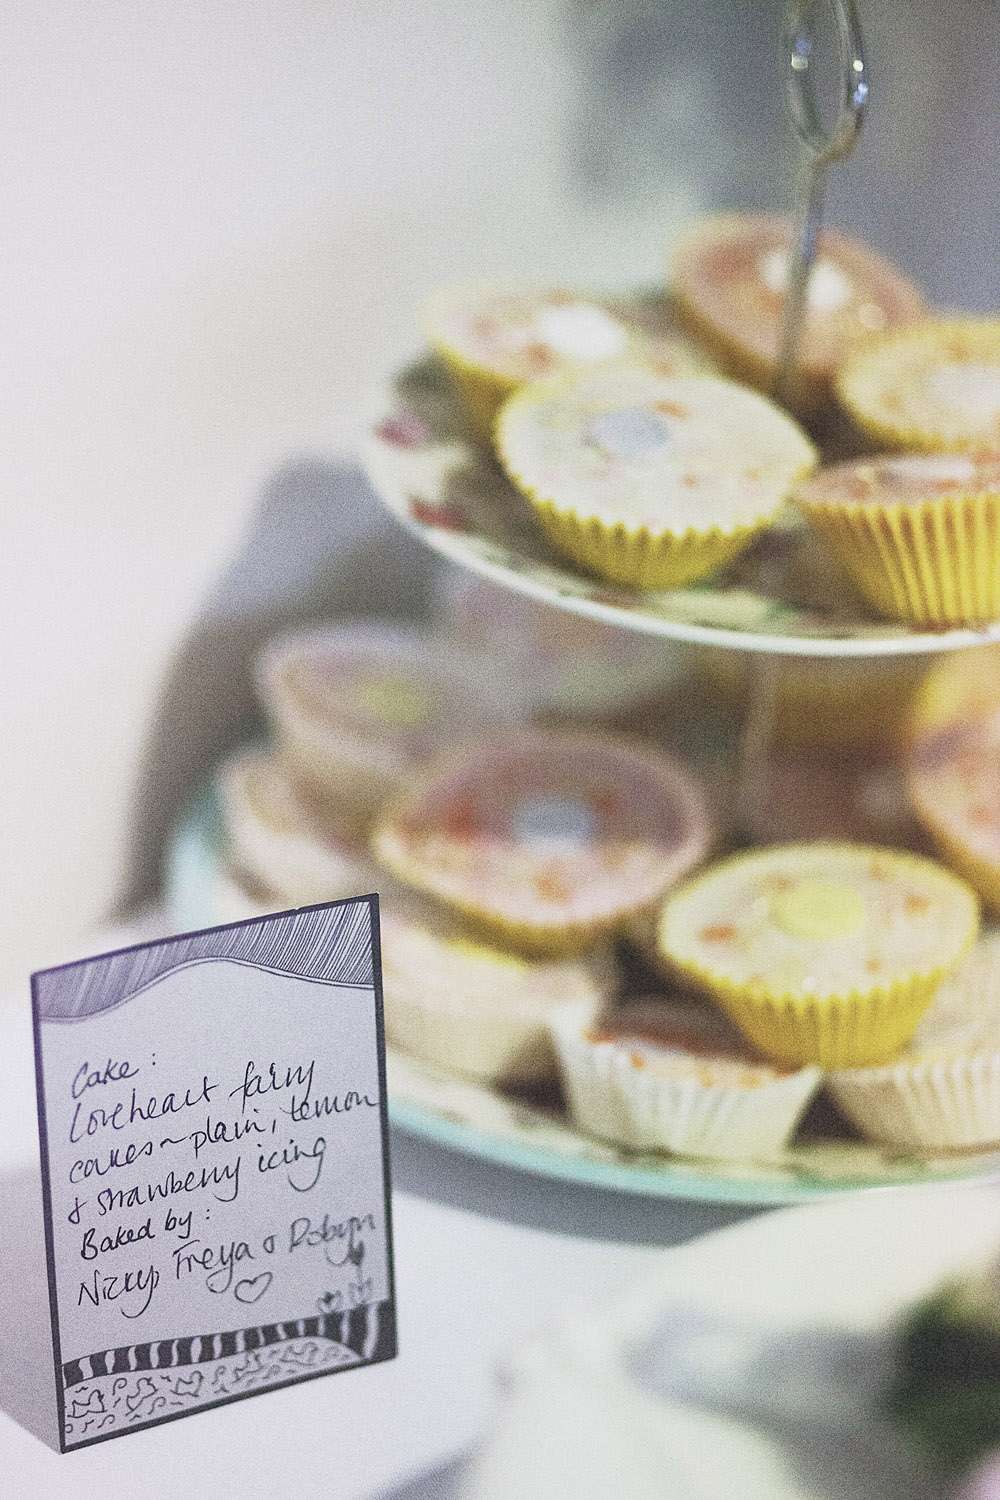 Cake:
Loveheart fairy
cakes~plain, lemon
& strawberry icing
Baked by:
Nicky, Freya & Robyn